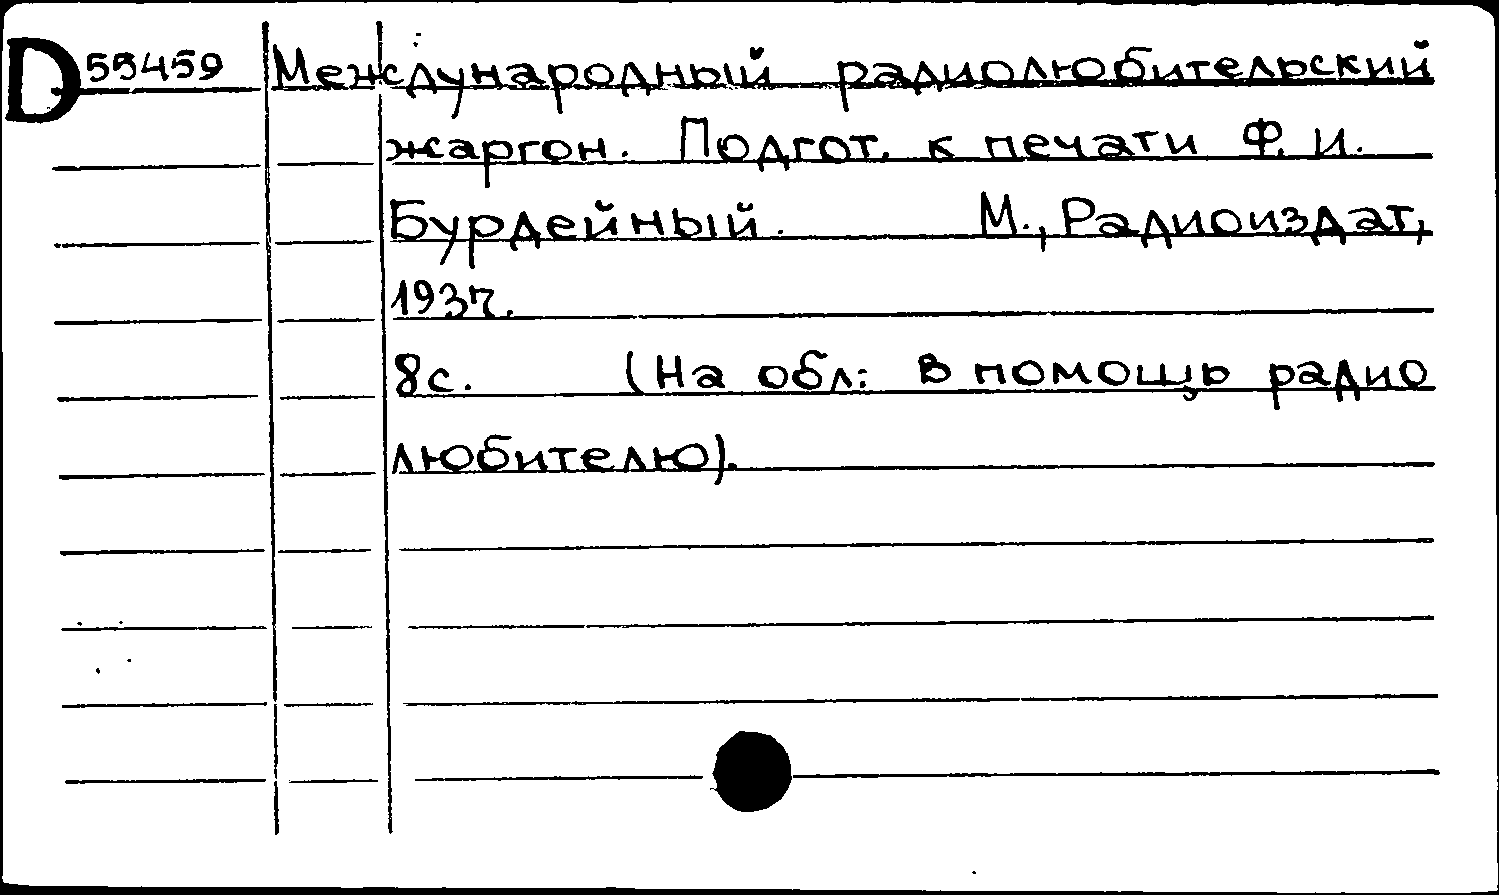 D 55459 Международный радиолюбительский
жаргон. Подгот. к печати Ф. И.
Бурдейный. М., Радиоиздат,
1937.
8с. (На обл: В помощь радио
любителю).